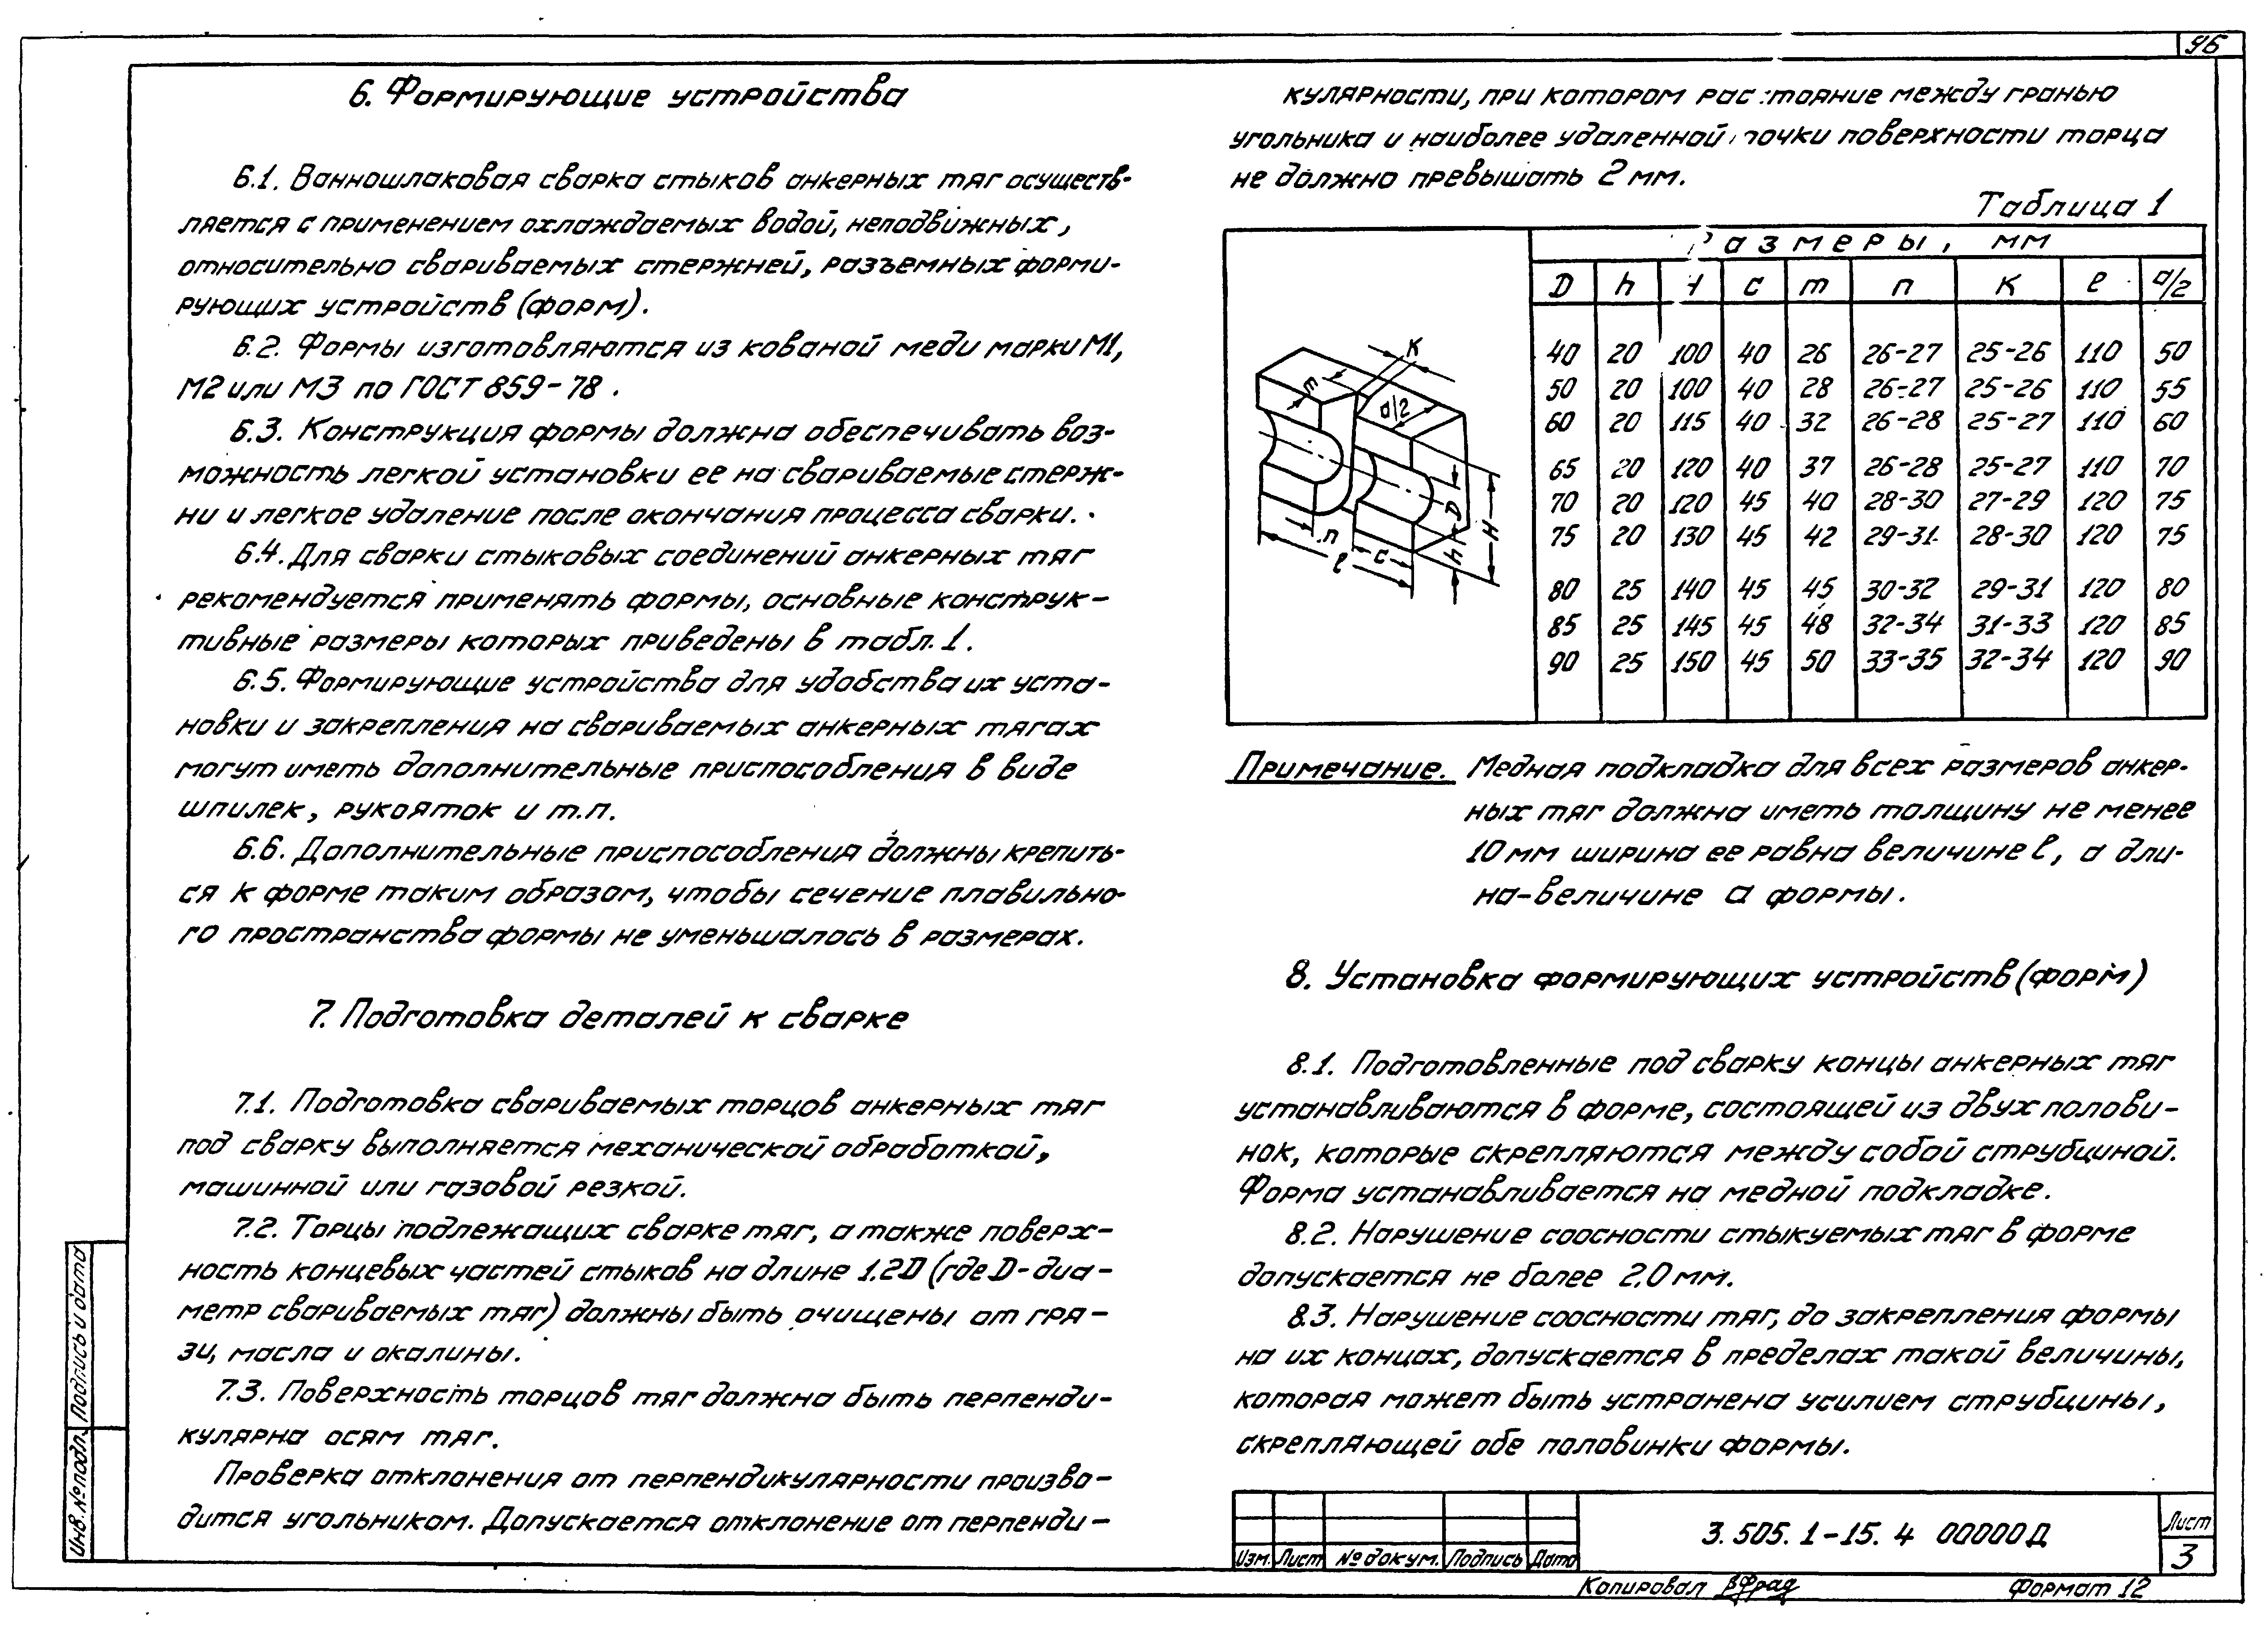 96
6. Формирующие устройства
6.1. Ванношлаковая сварка стыков анкерных тяг осуществ-
ляется с применением охлаждаемых водой, неподвижных,
относительно свариваемых стержней, разъемных форми-
рующих устройств (форм).
6.2. Формы изготовляются из кованой меди марки М1,
М2 или М3 по ГОСТ 859-78.
6.3. Конструкция формы должна обеспечивать воз-
можность легкой установки ее на свариваемые стерж-
ни и легкое удаление после окончания процесса сварки.
6.4. Для сварки стыковых соединений анкерных тяг
рекомендуется применять формы, основные конструк-
тивные размеры которых приведены в табл. 1.
6.5. Формирующие устройства для удобства их уста-
новки и закрепления на свариваемых анкерных тягах
могут иметь дополнительные приспособления в виде
шпилек, рукояток и т.п.
6.6. Дополнительные приспособления должны крепить-
ся к форме таким образом, чтобы сечение плавильно-
го пространства формы не уменьшалось в размерах.
7. Подготовка деталей к сварке
7.1. Подготовка свариваемых торцов анкерных тяг
под сварку выполняется механической обработкой,
машинной или газовой резкой.
7.2. Торцы подлежащих сварке тяг, а также поверх-
ность концевых частей стыков на длине 1.2D (где D- диа-
метр свариваемых тяг) должны быть очищены от гря-
зи, масла и окалины.
7.3. Поверхность торцов тяг должна быть перпенди-
кулярна осям тяг.
Проверка отклонения от перпендикулярности произво-
дится угольником. Допускается отклонение от перпенди-
кулярности, при котором расстояние между гранью
угольника и наиболее удаленной точки поверхности торца
не должно превышать 2 мм.
Таблица 1
Размеры, мм
D h H c m n K l a/2
40 20 100 40 26 26-27 25-26 110 50
50 20 100 40 28 26-27 25-26 110 55
60 20 115 40 32 26-28 25-27 110 60
65 20 120 40 37 26-28 25-27 110 70
70 20 120 45 40 28-30 27-29 120 75
75 20 130 45 42 29-31 28-30 120 75
80 25 140 45 45 30-32 29-31 120 80
85 25 145 45 48 32-34 31-33 120 85
90 25 150 45 50 33-35 32-34 120 90
K
m
a/2
D
H
n
c
h
l
Примечание. Медная подкладка для всех размеров анкер-
ных тяг должна иметь толщину не менее
10 мм ширина ее равна величине l, а дли-
на-величине a формы.
8. Установка формирующих устройств (форм)
8.1. Подготовленные под сварку концы анкерных тяг
устанавливаются в форме, состоящей из двух полови-
нок, которые скрепляются между собой струбциной.
Форма устанавливается на медной подкладке.
8.2. Нарушение соосности стыкуемых тяг в форме
допускается не более 2.0 мм.
8.3. Нарушение соосности тяг, до закрепления формы
на их концах, допускается в пределах такой величины,
которая может быть устранена усилием струбцины,
скрепляющей обе половинки формы.
Инв. № подл. Подпись и дата
Изм. Лист № докум. Подпись Дата
3.505.1-15.4 00000Д
Лист
3
Копировал
Формат 12